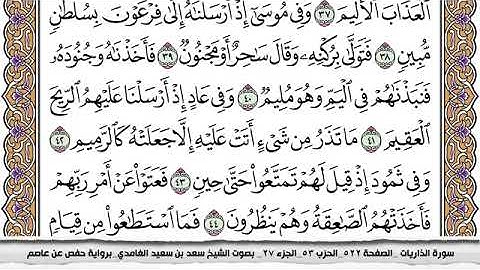 ٱلْعَذَابَ ٱلْأَلِيمَ ٣٧ وَفِى مُوسَىٰٓ إِذْ أَرْسَلْنَٰهُ إِلَىٰ فِرْعَوْنَ بِسُلْطَٰنٍ
مُّبِينٍ ٣٨ فَتَوَلَّىٰ بِرُكْنِهِۦ وَقَالَ سَٰحِرٌ أَوْ مَجْنُونٌ ٣٩ فَأَخَذْنَٰهُ وَجُنُودَهُۥ
فَنَبَذْنَٰهُمْ فِى ٱلْيَمِّ وَهُوَ مُلِيمٌ ٤٠ وَفِى عَادٍ إِذْ أَرْسَلْنَا عَلَيْهِمُ ٱلرِّيحَ
ٱلْعَقِيمَ ٤١ مَا تَذَرُ مِن شَىْءٍ أَتَتْ عَلَيْهِ إِلَّا جَعَلَتْهُ كَٱلرَّمِيمِ ٤٢
وَفِى ثَمُودَ إِذْ قِيلَ لَهُمْ تَمَتَّعُوا۟ حَتَّىٰ حِينٍ ٤٣ فَعَتَوْا۟ عَنْ أَمْرِ رَبِّهِمْ
فَأَخَذَتْهُمُ ٱلصَّٰعِقَةُ وَهُمْ يَنظُرُونَ ٤٤ فَمَا ٱسْتَطَٰعُوا۟ مِن قِيَامٍ
سورة الذاريات _ الصفحة ٥٢٢ _ الحزب ٥٣ _ الجزء ٢٧ _ بصوت الشيخ سعد بن سعيد الغامدي _ برواية حفص عن عاصم